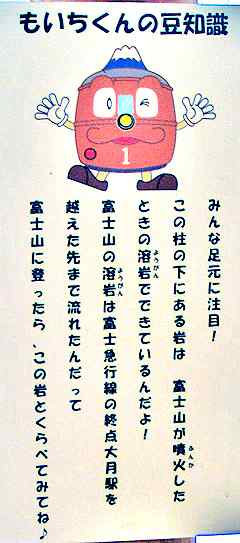 もいちくんの豆知識
1
みんな足元に注目！
この柱の下にある岩は　富士山が噴火した
ふんか
ときの溶岩でできているんだよ！
ようがん
富士山の溶岩は富士急行線の終点大月駅を
ようがん
越えた先まで流れたんだって
富士山に登ったら、この岩とくらべてみてね♪